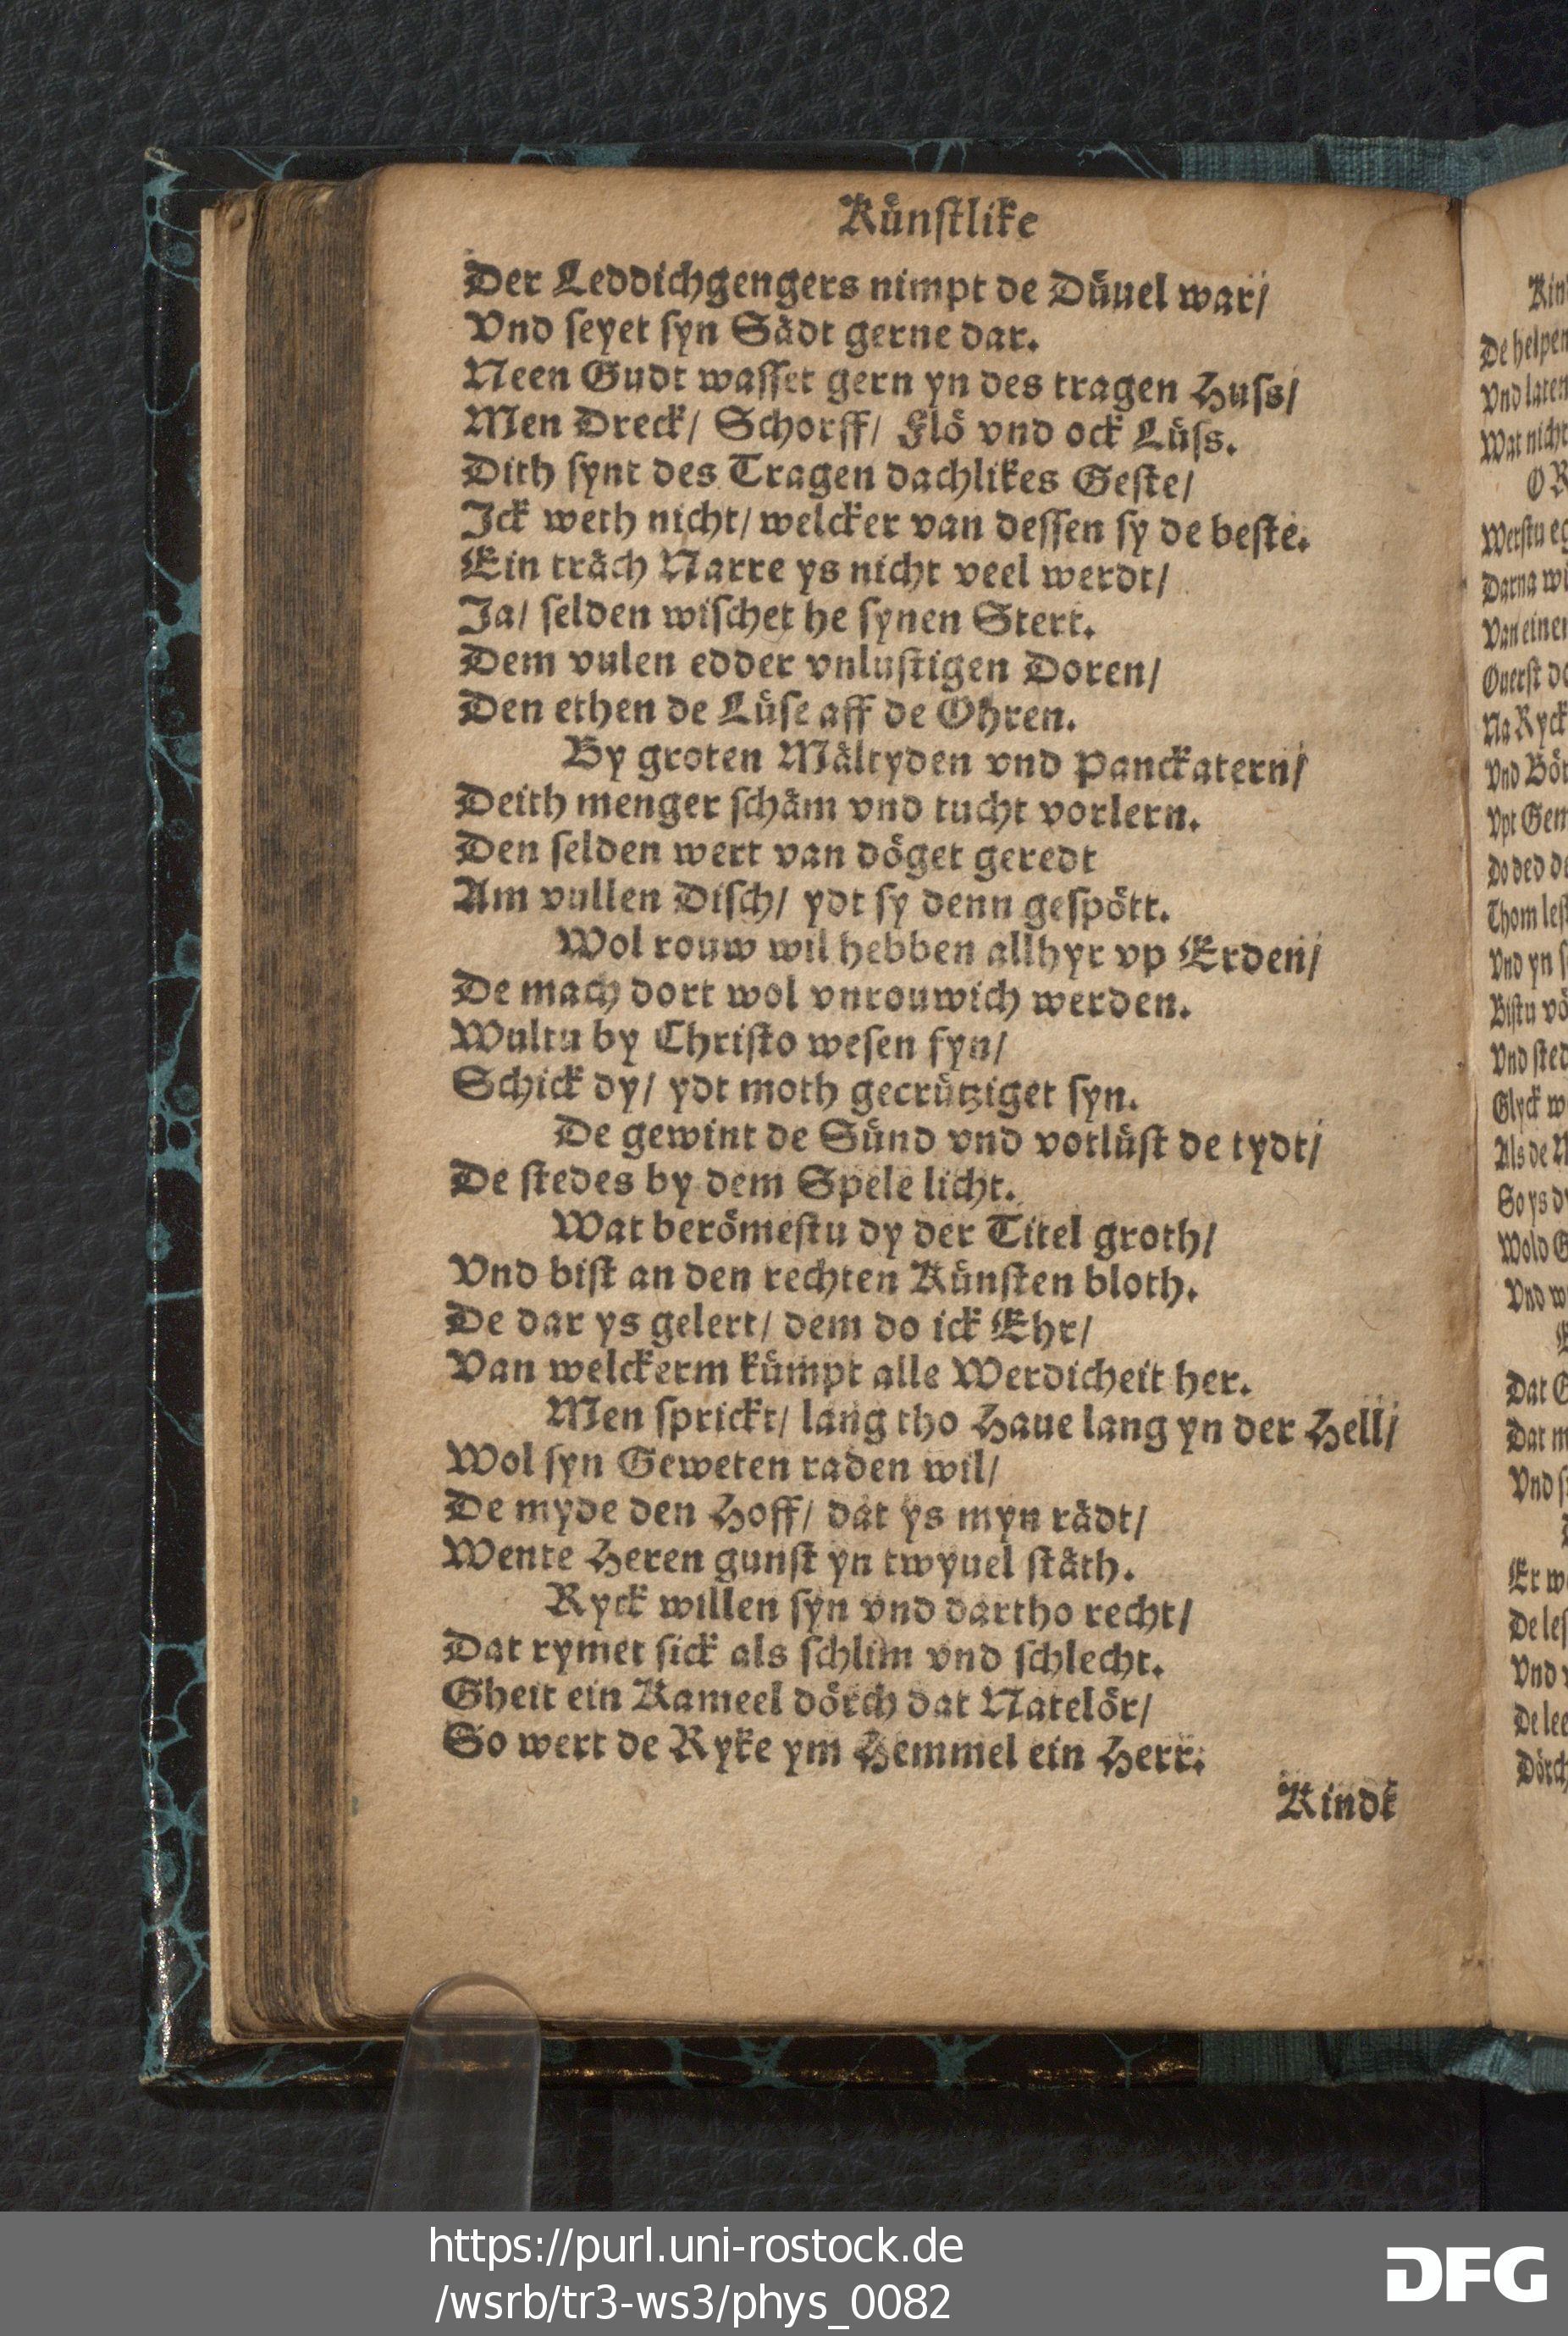 Kuͤnſtlike
Der Leddichgengers nimpt de Duͤuel war/
Vnd ſeyet ſyn Saͤdt gerne dar.
Neen Gudt waſſet gern yn des tragen Huſs/
Men Dreck/ Schorff/ Floͤ vnd ock Luͤſs.
Dith ſynt des Tragen dachlikes Geſte/
Ick weth nicht/ welcker van deſſen ſy de beſte.
Ein traͤch Narre ys nicht veel werdt/
Ja/ ſelden wiſchet he ſynen Stert.
Dem vulen edder vnluſtigen Doren/
Den ethen de Luͤſe aff de Ohren.
By groten Maͤltyden vnd Panckatern/
Deith menger ſchaͤm vnd tucht vorlern.
Den ſelden wert van doͤget geredt
Am vullen Diſch/ ydt ſy denn geſpoͤtt.
Wol rouw wil hebben allhyr vp Erden/
De mach dort wol vnrouwich werden.
Wultu by Chriſto weſen fyn/
Schick dy/ ydt moth gecruͤtziget ſyn.
De gewint de Suͤnd vnd vorluͤſt de tydt/
De ſtedes by dem Spele licht.
Wat beroͤmeſtu dy der Titel groth/
Vnd biſt an den rechten Kuͤnſten bloth.
De dar ys gelert/ dem do ick Ehr/
Van welckerm kuͤmpt alle Werdicheit her.
Men ſprickt/ lang tho Haue lang yn der Hell/
Wol ſyn Geweten raden wil/
De myde den Hoff/ dat ys myn raͤdt/
Wente Heren gunſt yn twyuel ſtaͤth.
Ryck willen ſyn vnd dartho recht/
Dat rymet ſick als ſchlim vnd ſchlecht.
Gheit ein Kameel doͤrch dat Nateloͤr/
So wert de Ryke ym Hemmel ein Herr.
Kindt
Kin
De helpen
Vnd laten
Wat nicht
Werſtu
Darna
Van einer
Ouerſt
Na Ryck
Vnd
Vpt
Do ded
Thom
Vnd yn
Biſtu
Vnd
Glyck
Als de
So ys
Wold
Vnd
Dat
Dat
Vnd
Er
De
Vnd
De
Doͤrch
https://purl.uni-rostock.de
/wsrb/tr3-ws3/phys_0082
DFG